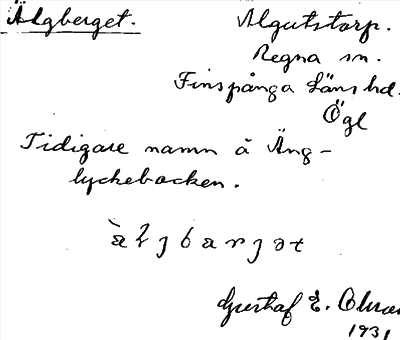 Älgberget. Algutstorp.
Regna sn.
Finspånga läns hd.
Ögl
Tidigare namn å Äng-
lyckebacken.
Gustaf E.
1931